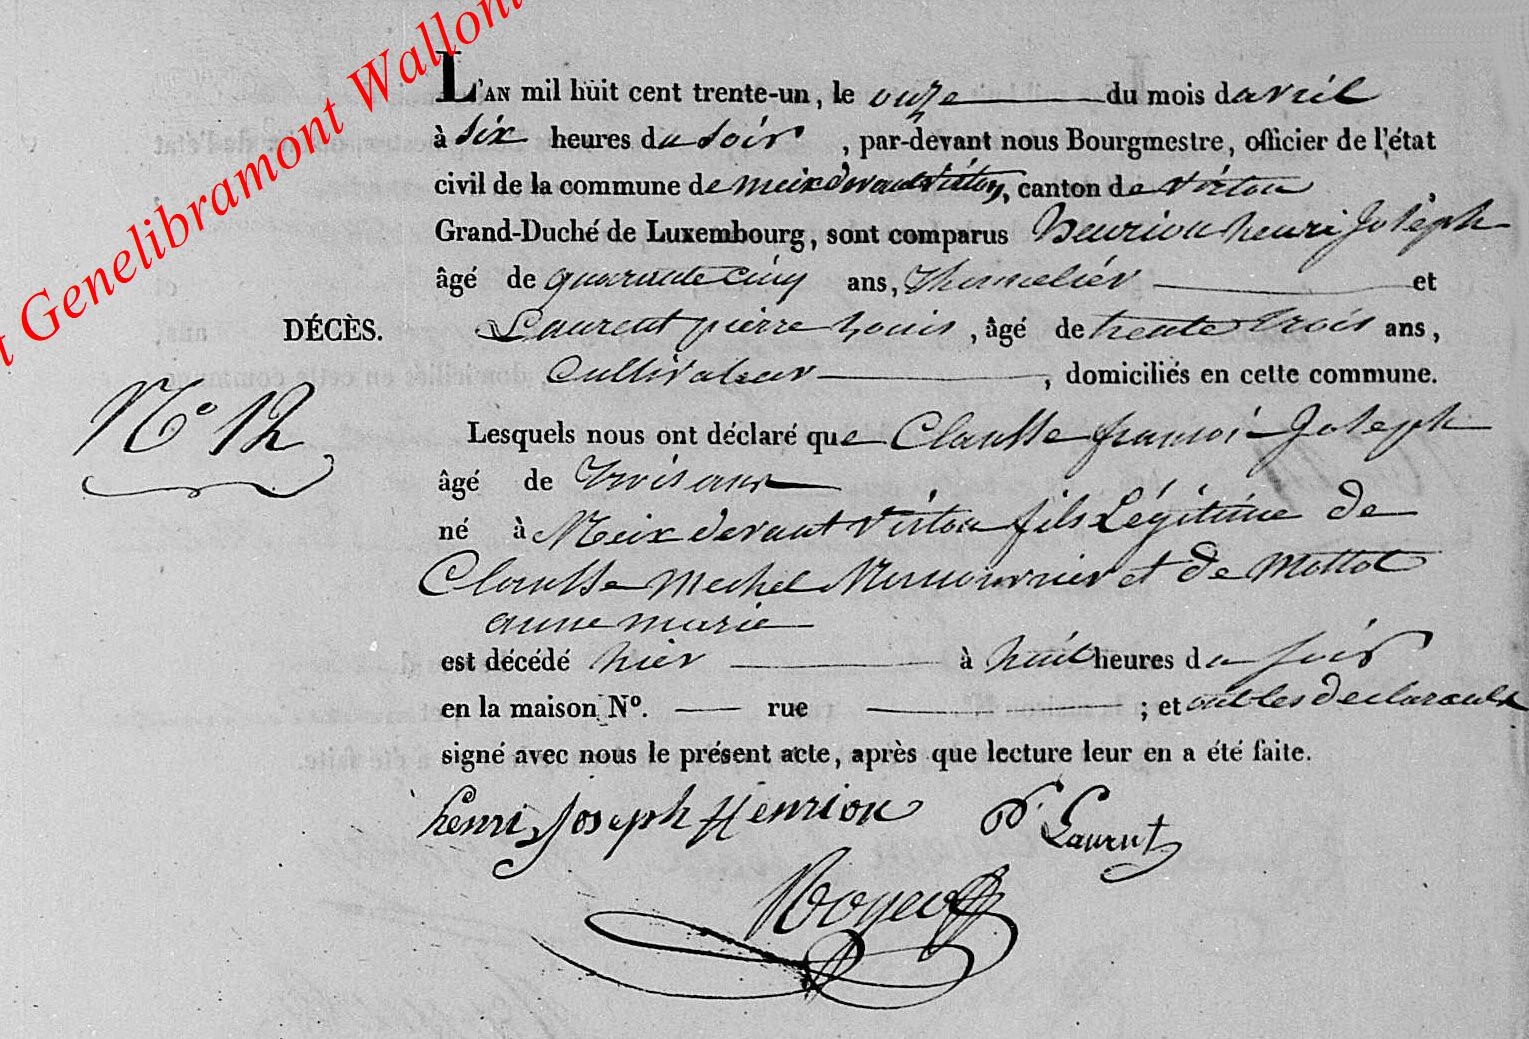 t Genelibramont Walloni
L'AN mil huit cent trente-un, le onze du mois davril
à six heures du soir, par-devant nous Bourgmestre, officier de l'état
civil de la commune de meix devant virton, canton de virton
Grand-Duché de Luxembourg, sont comparus henrion henri Joseph
âgé de quarante cinq ans, thonnelier et
DÉCÈS. Laurent pierre Louis, âgé de trente trois ans,
Cultivateur, domiciliés en cette commune.
N° 12
Lesquels nous ont déclaré que Clausse françoi Joseph
âgé de trois ans
né à Meix devant virton fils Légitime de
Clausse Mechel et de Mottot
anne marie
est décédé hier à huit heures du soir
en la maison N°. — rue — ; et ont les declarants
signé avec nous le présent acte, après que lecture leur en a été faite.
henri Joseph Henrion P. Laurent